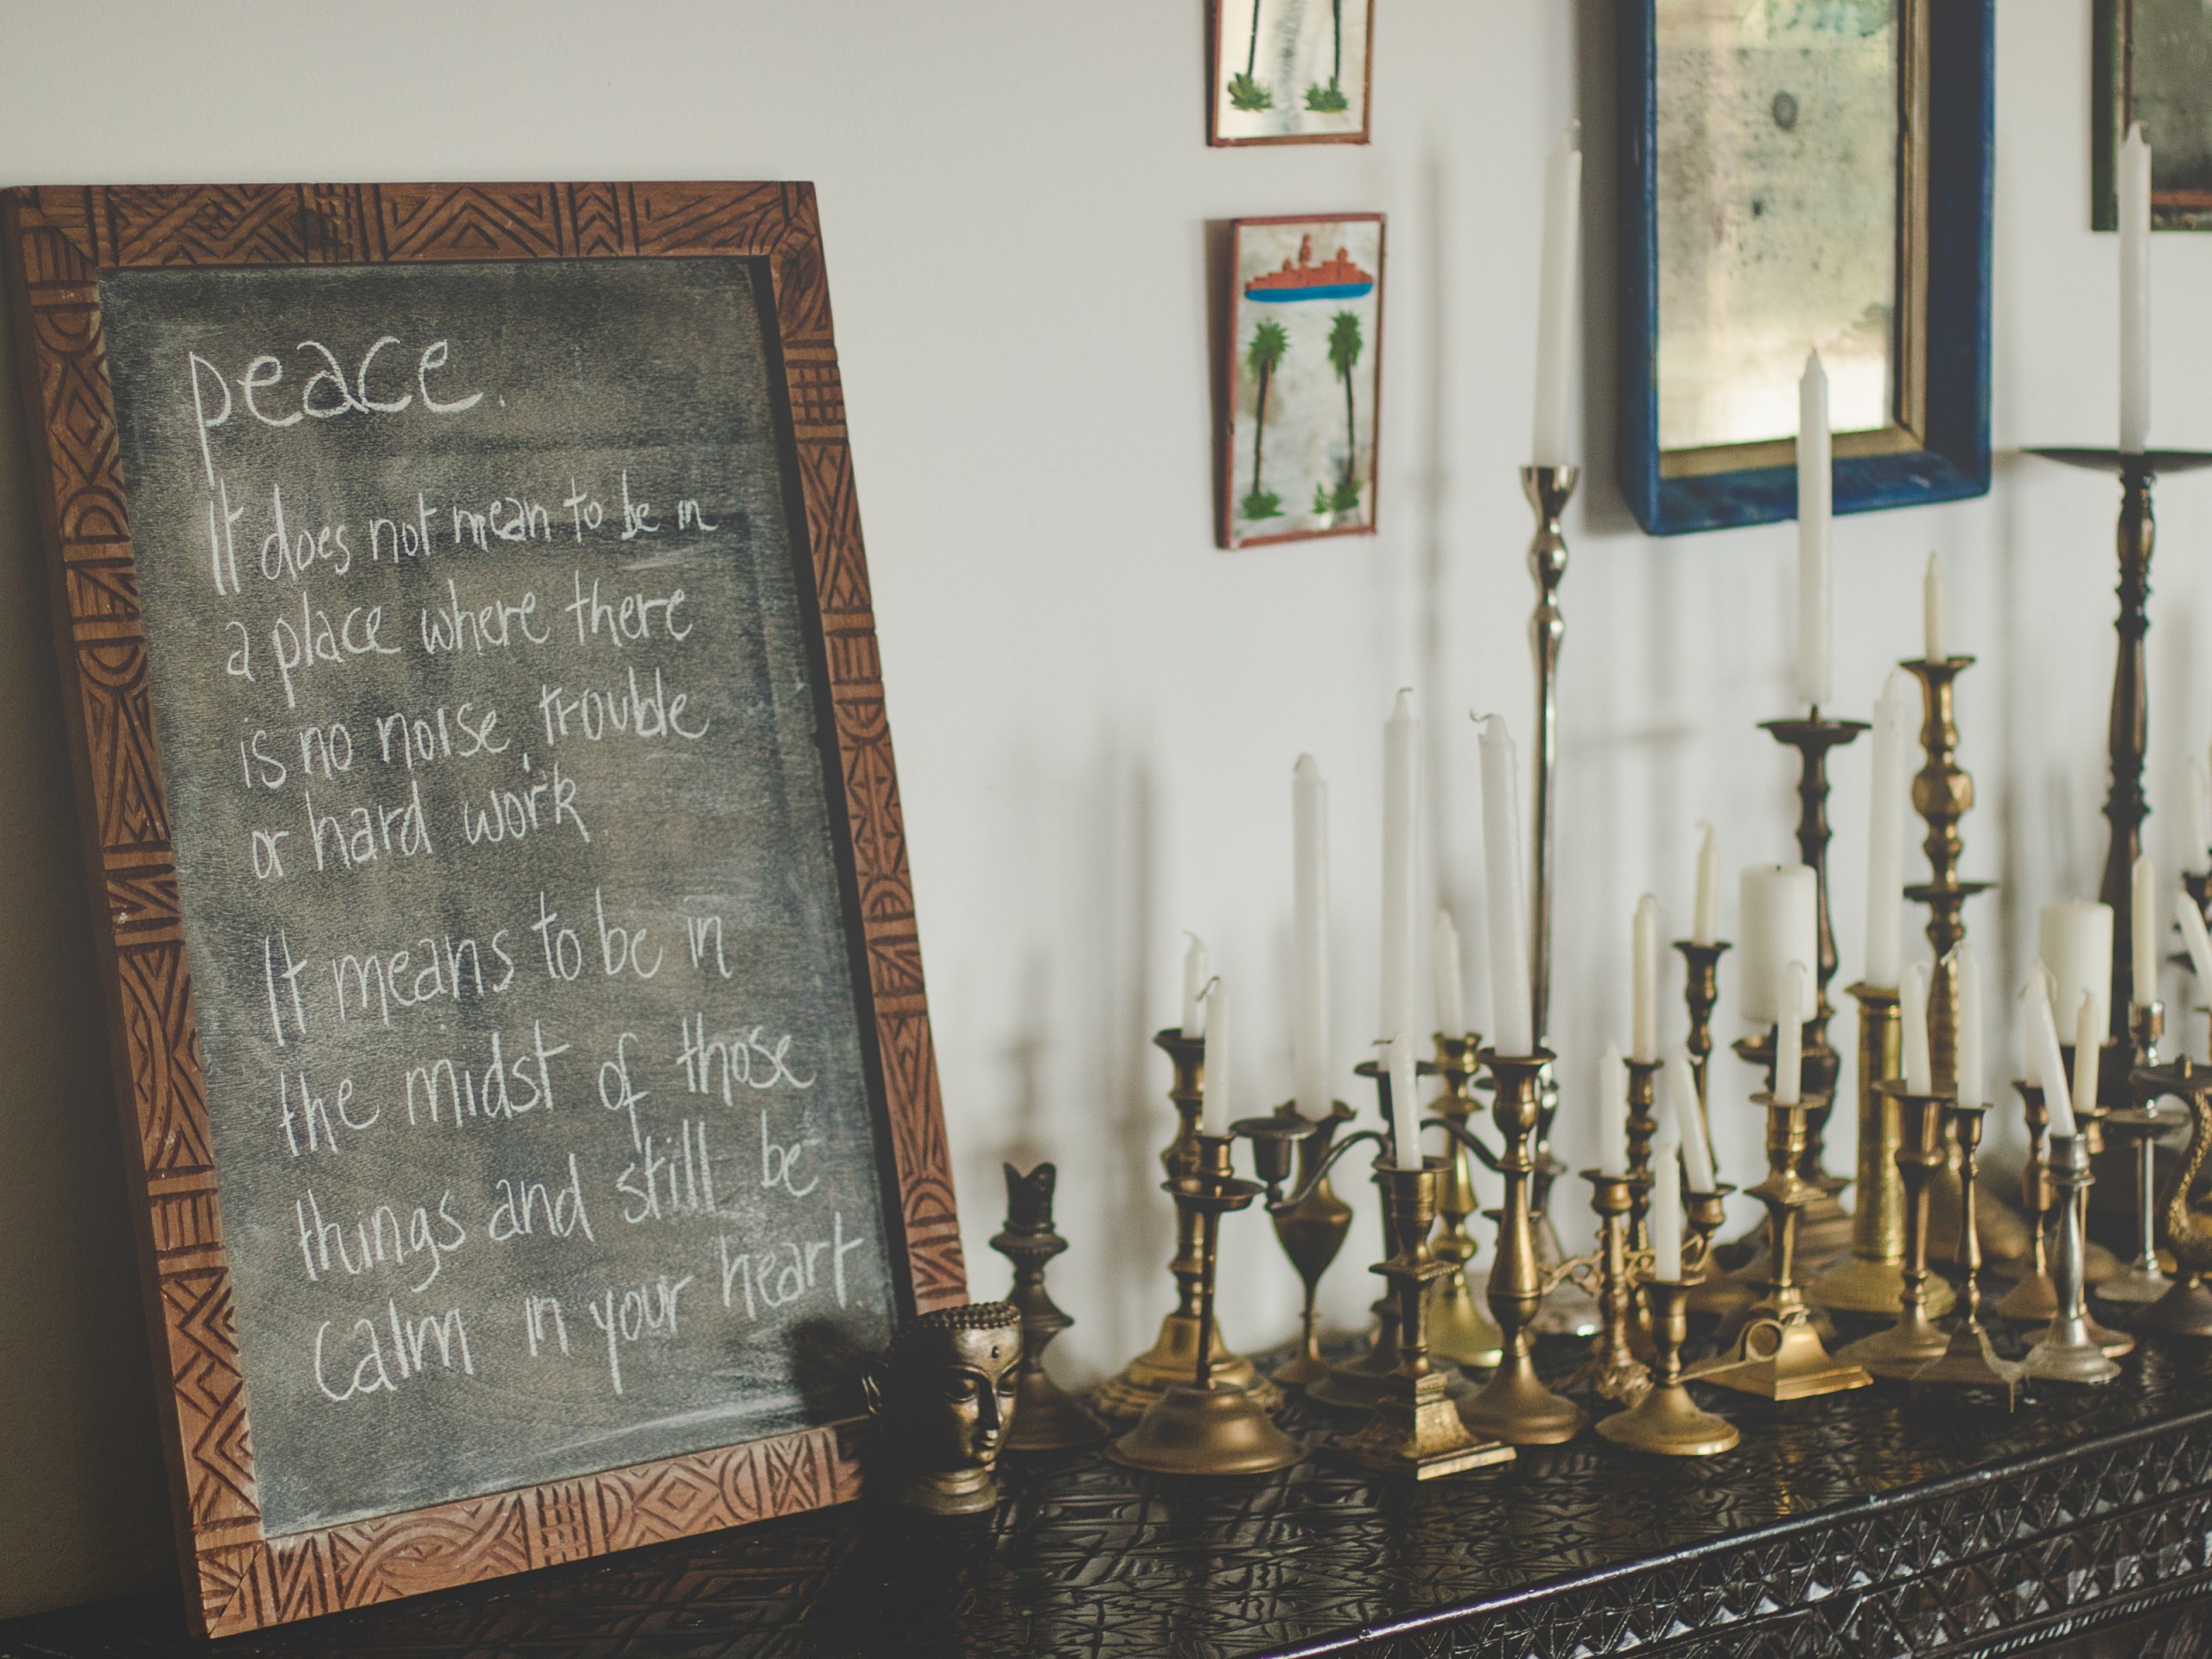 peace.
It does not mean to be in
a place where there
is no noise, trouble
or hard work
It means to be in
the midst of those
things and still be
calm in your heart.